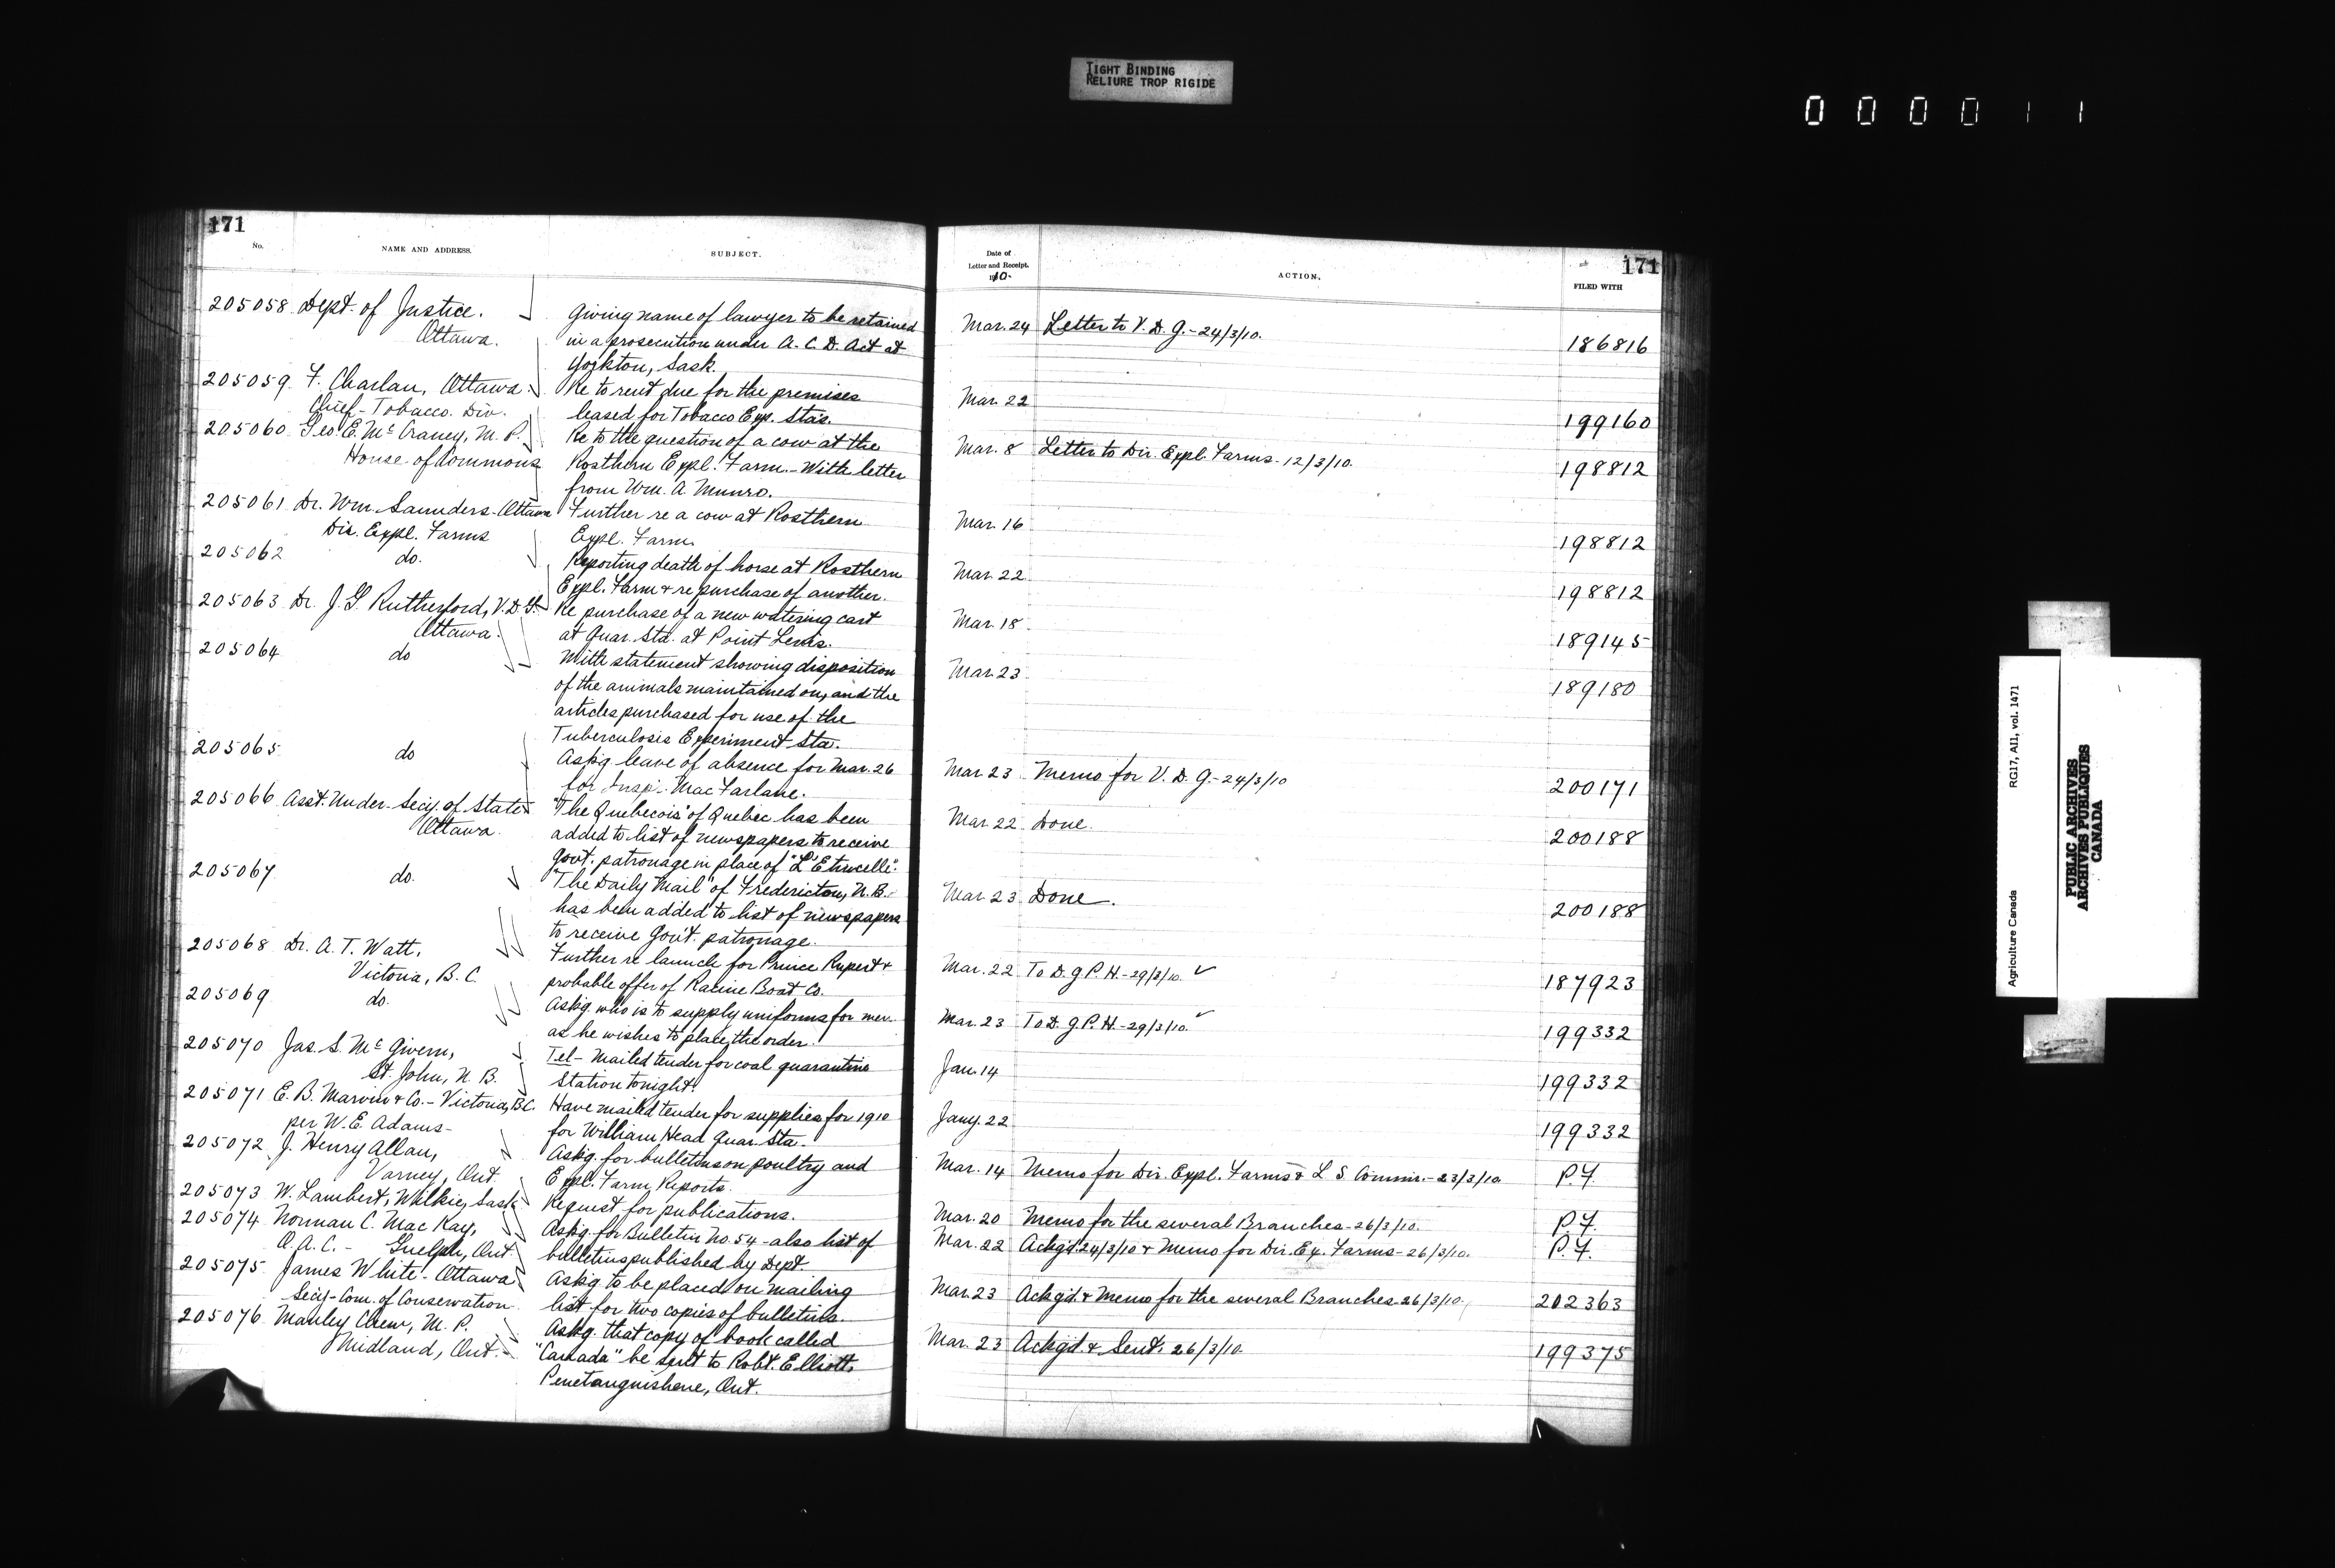 TIGHT BINDING
RELIURE TROP RIGIDE
000011
171
No.
NAME AND ADDRESS.
SUBJECT.
205058 Dept. of Justice.
Ottawa.
Giving name of lawyer to be retained
in a prosecution under A. C. D. Act at
Yorkton, Sask.
205059 F. Charlan, Ottawa.
Chief - Tobacco Div.
Re to rent due for the premises
leased for Tobacco Exp. Stas.
205060 Geo. E. McCraney, M. P.
House of Commons
Re to the question of a cow at the
Rosthern Expl. Farm. - With letter
from Wm. A. Munro.
205061 Dr. Wm. Saunders - Ottawa
Dir. Expl. Farms
Further re a cow at Rosthern
Expl. Farm.
205062 do.
Reporting death of horse at Rosthern
Expl. Farm & re purchase of another.
205063 Dr. J. G. Rutherford, V. D. G.
Ottawa.
Re purchase of a new watering cart
at Quar. Sta. at Point Levis.
205064 do
With statement showing disposition
of the animals maintained on, and the
articles purchased for use of the
Tuberculosis Experiment Sta.
205065 do
Askg. leave of absence for Mar. 26
for Insp. MacFarlane.
205066 Asst. Under-Secy. of State
Ottawa.
"The Quebecois" of Quebec has been
added to list of newspapers to receive
Govt. patronage in place of "L'Etincelle".
205067 do.
"The Daily Mail" of Fredericton, N. B.
has been added to list of newspapers
to receive Gov't. patronage.
205068 Dr. A. T. Watt,
Victoria, B. C.
Further re launch for Prince Rupert &
probable offer of Racine Boat Co.
205069 do.
Askg. who is to supply uniforms for men
as he wishes to place the order.
205070 Jas. S. McGivern,
St. John, N. B.
Tel - Mailed tender for coal quarantine
Station tonight.
205071 E. B. Marvin & Co. - Victoria, B.C.
per W. E. Adams -
Have mailed tender for supplies for 1910
for William Head Quar. Sta.
205072 J. Henry Allan,
Varney, Ont.
Askg. for bulletins on poultry and
Expl. Farm Reports.
205073 W. Lambert, Wilkie, Sask.
Request for publications.
205074 Norman C. MacKay,
O. A. C. - Guelph, Ont.
Askg. for Bulletin No. 54 - also list of
bulletins published by Dept.
205075 James White - Ottawa
Secy - Com. of Conservation
Askg. to be placed on mailing
list for two copies of bulletins.
205076 Manley Chew, M. P.
Midland, Ont.
Askg. that copy of book called
"Canada" be sent to Robt. Elliott,
Penetanguishene, Ont.
171
Date of
Letter and Receipt.
1910.
ACTION.
FILED WITH
Mar. 24 Letter to V. D. G. - 24/3/10. 186816
Mar. 22 199160
Mar. 8 Letter to Dir. Expl. Farms - 12/3/10. 198812
Mar. 16 198812
Mar. 22 198812
Mar. 18 189145
Mar. 23 189180
Mar. 23 Memo for V. D. G. - 24/3/10 200171
Mar. 22 Done. 200188
Mar. 23 Done. 200188
Mar. 22 To D. G. P. H. - 29/3/10. ✓ 187923
Mar. 23 To D. G. P. H. - 29/3/10. ✓ 199332
Jan. 14 199332
Jany. 22 199332
Mar. 14 Memo for Dir. Expl. Farms & L. S. Commr. - 23/3/10. P.F.
Mar. 20 Memo for the several Branches - 26/3/10. P.F.
Mar. 22 Ackg'd 24/3/10 & Memo for Dir. Ex. Farms - 26/3/10. P.F.
Mar. 23 Ackg'd. & Memo for the several Branches - 26/3/10. 202363
Mar. 23 Ackg'd. & Sent. 26/3/10. 199375
Agriculture Canada RG17, AII, vol. 1471
PUBLIC ARCHIVES
ARCHIVES PUBLIQUES
CANADA